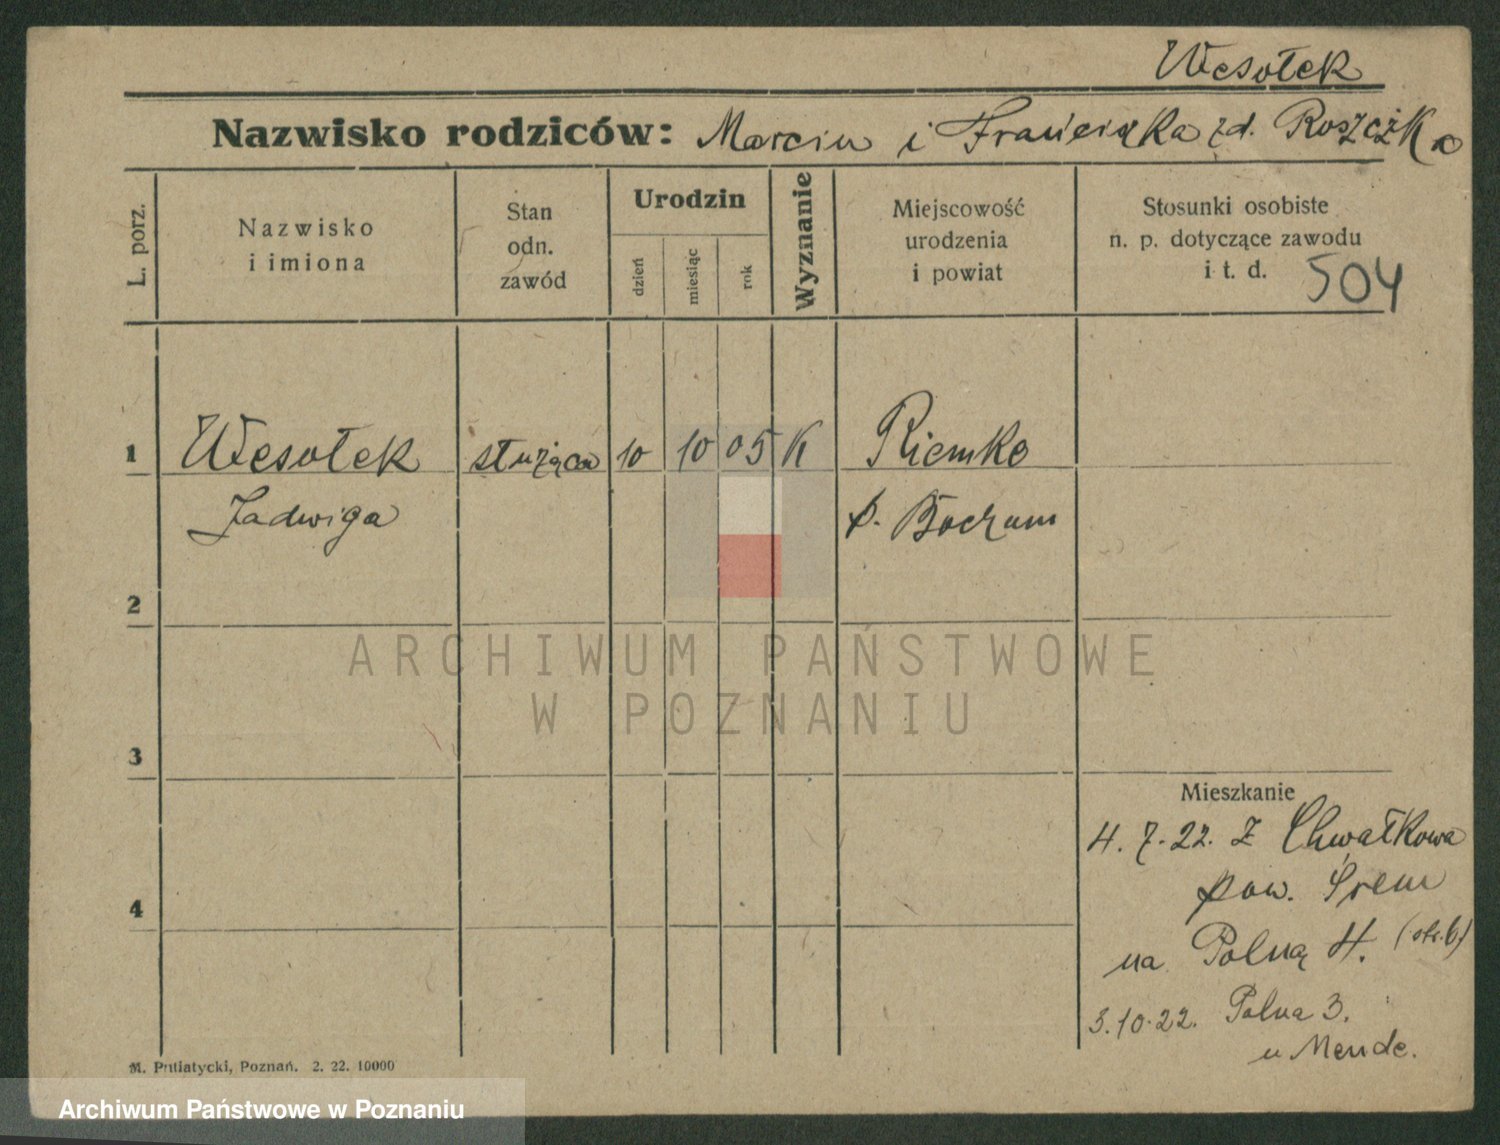 Wesołek
Nazwisko rodziców: Marcin i Franciszka zd. Roszczka
L. porz.
Nazwisko
i imiona
Stan
odn.
zawód
Urodzin
dzień
miesiąc
rok
Wyznanie
Miejscowość
urodzenia
i powiat
Stosunki osobiste
n. p. dotyczące zawodu
i t. d.
504
1 Wesołek służąca 10 10 05 K Riemke
Jadwiga p. Bochum
2
3
Mieszkanie
4. 7. 22. z Chwałkowa
pow. Śrem
4
na Polną 4.
3. 10. 22. Polna 3.
u Mende.
M. Putiatycki, Poznań. 2. 22. 10000
ARCHIWUM PAŃSTWOWE
W POZNANIU
Archiwum Państwowe w Poznaniu